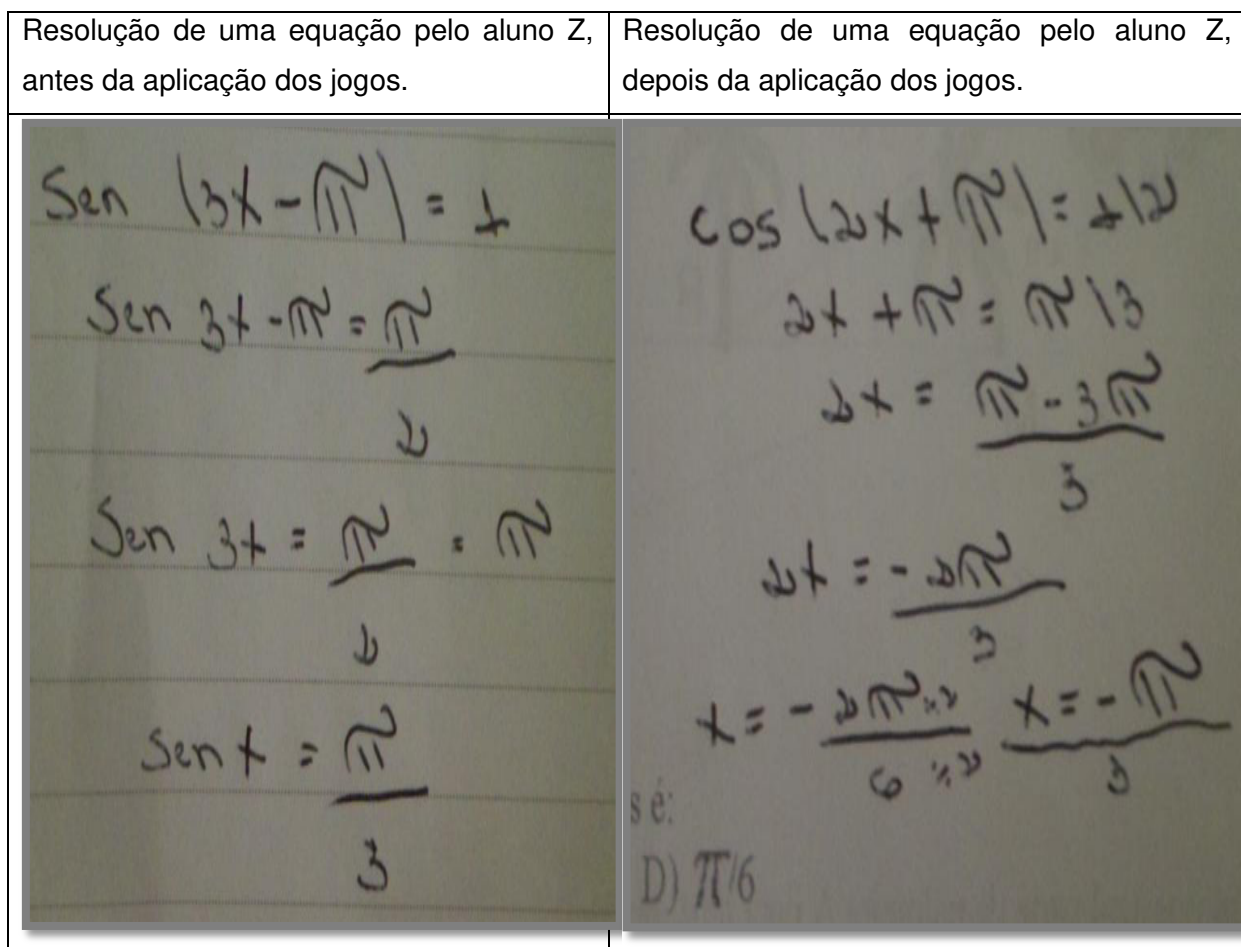 Resolução de uma equação pelo aluno Z,
antes da aplicação dos jogos.
Resolução de uma equação pelo aluno Z,
depois da aplicação dos jogos.
Sen (3x - π) = 1
Sen 3x - π = π/2
Sen 3x = π/2 = π
Sen x = π/3
cos (2x + π) = 1/2
2x + π = π/3
2x = π - 3π/3
2x = - 2π/3
x = - 2π÷2/6÷2 x = - π/3
s é:
D) π/6